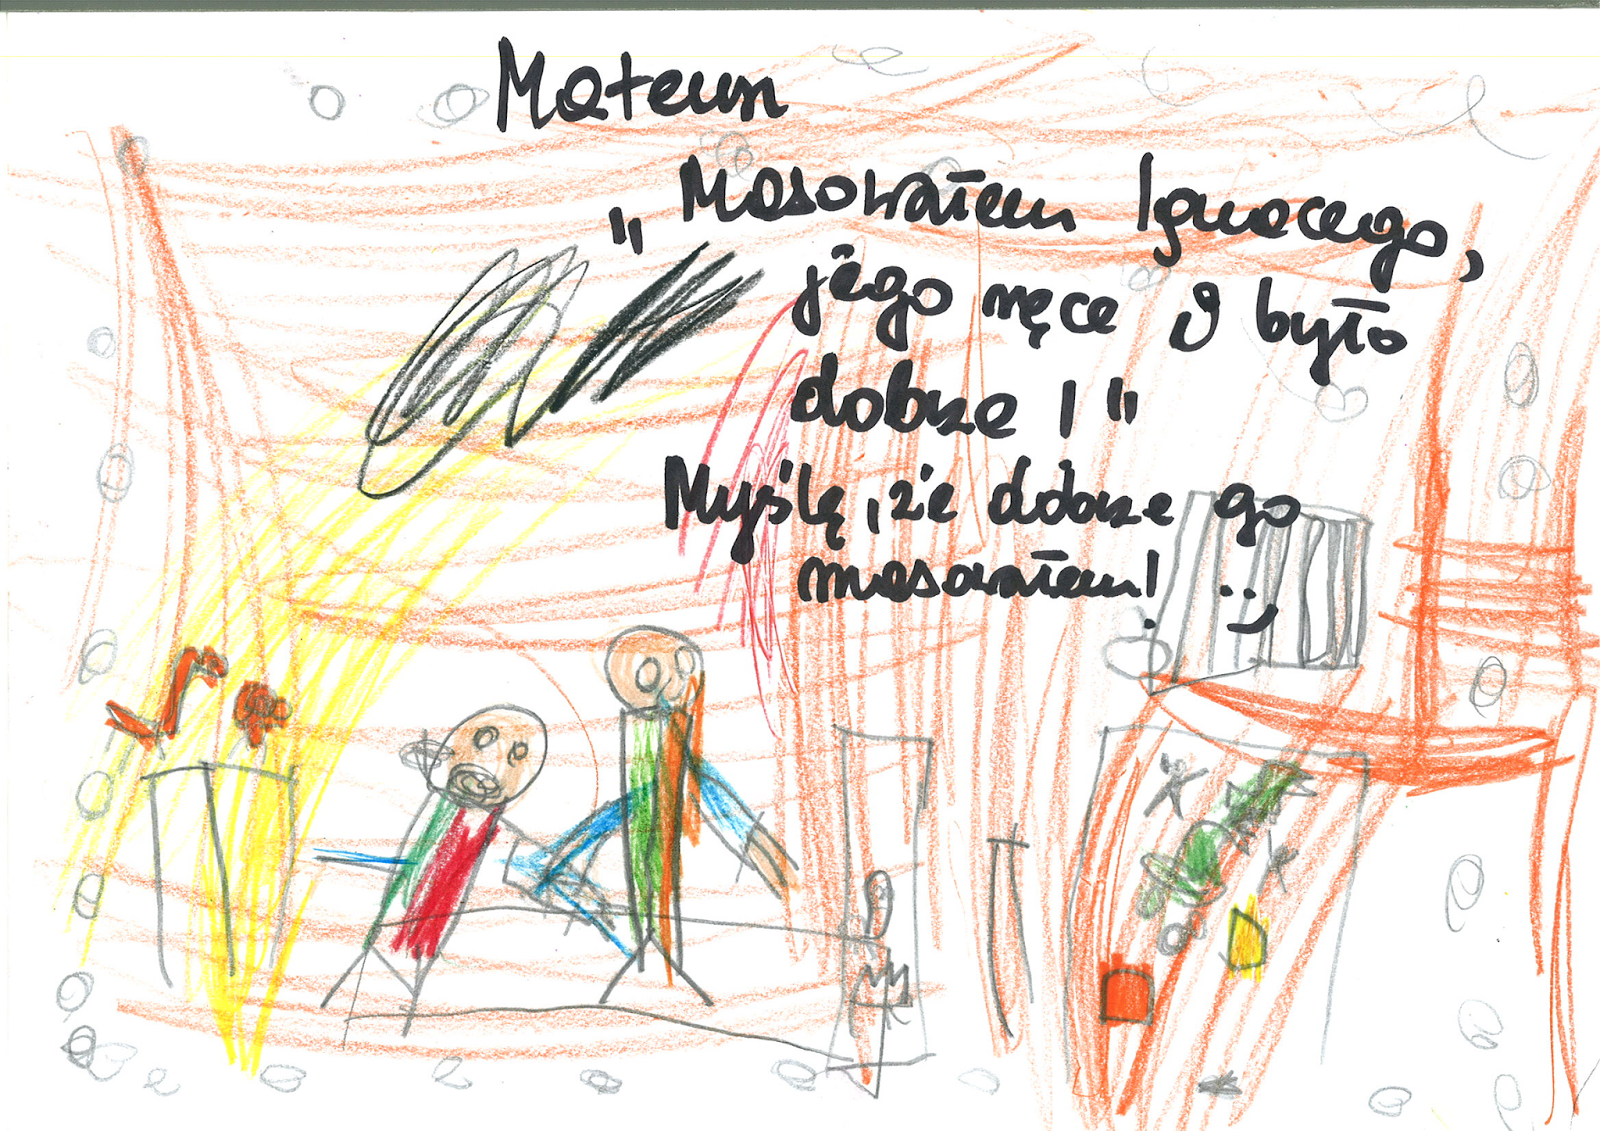 Mateusz
„Masowałem Ignacego,
jego ręce i było
dobrze!"
Myślę, że dobrze go
masowałem! :)